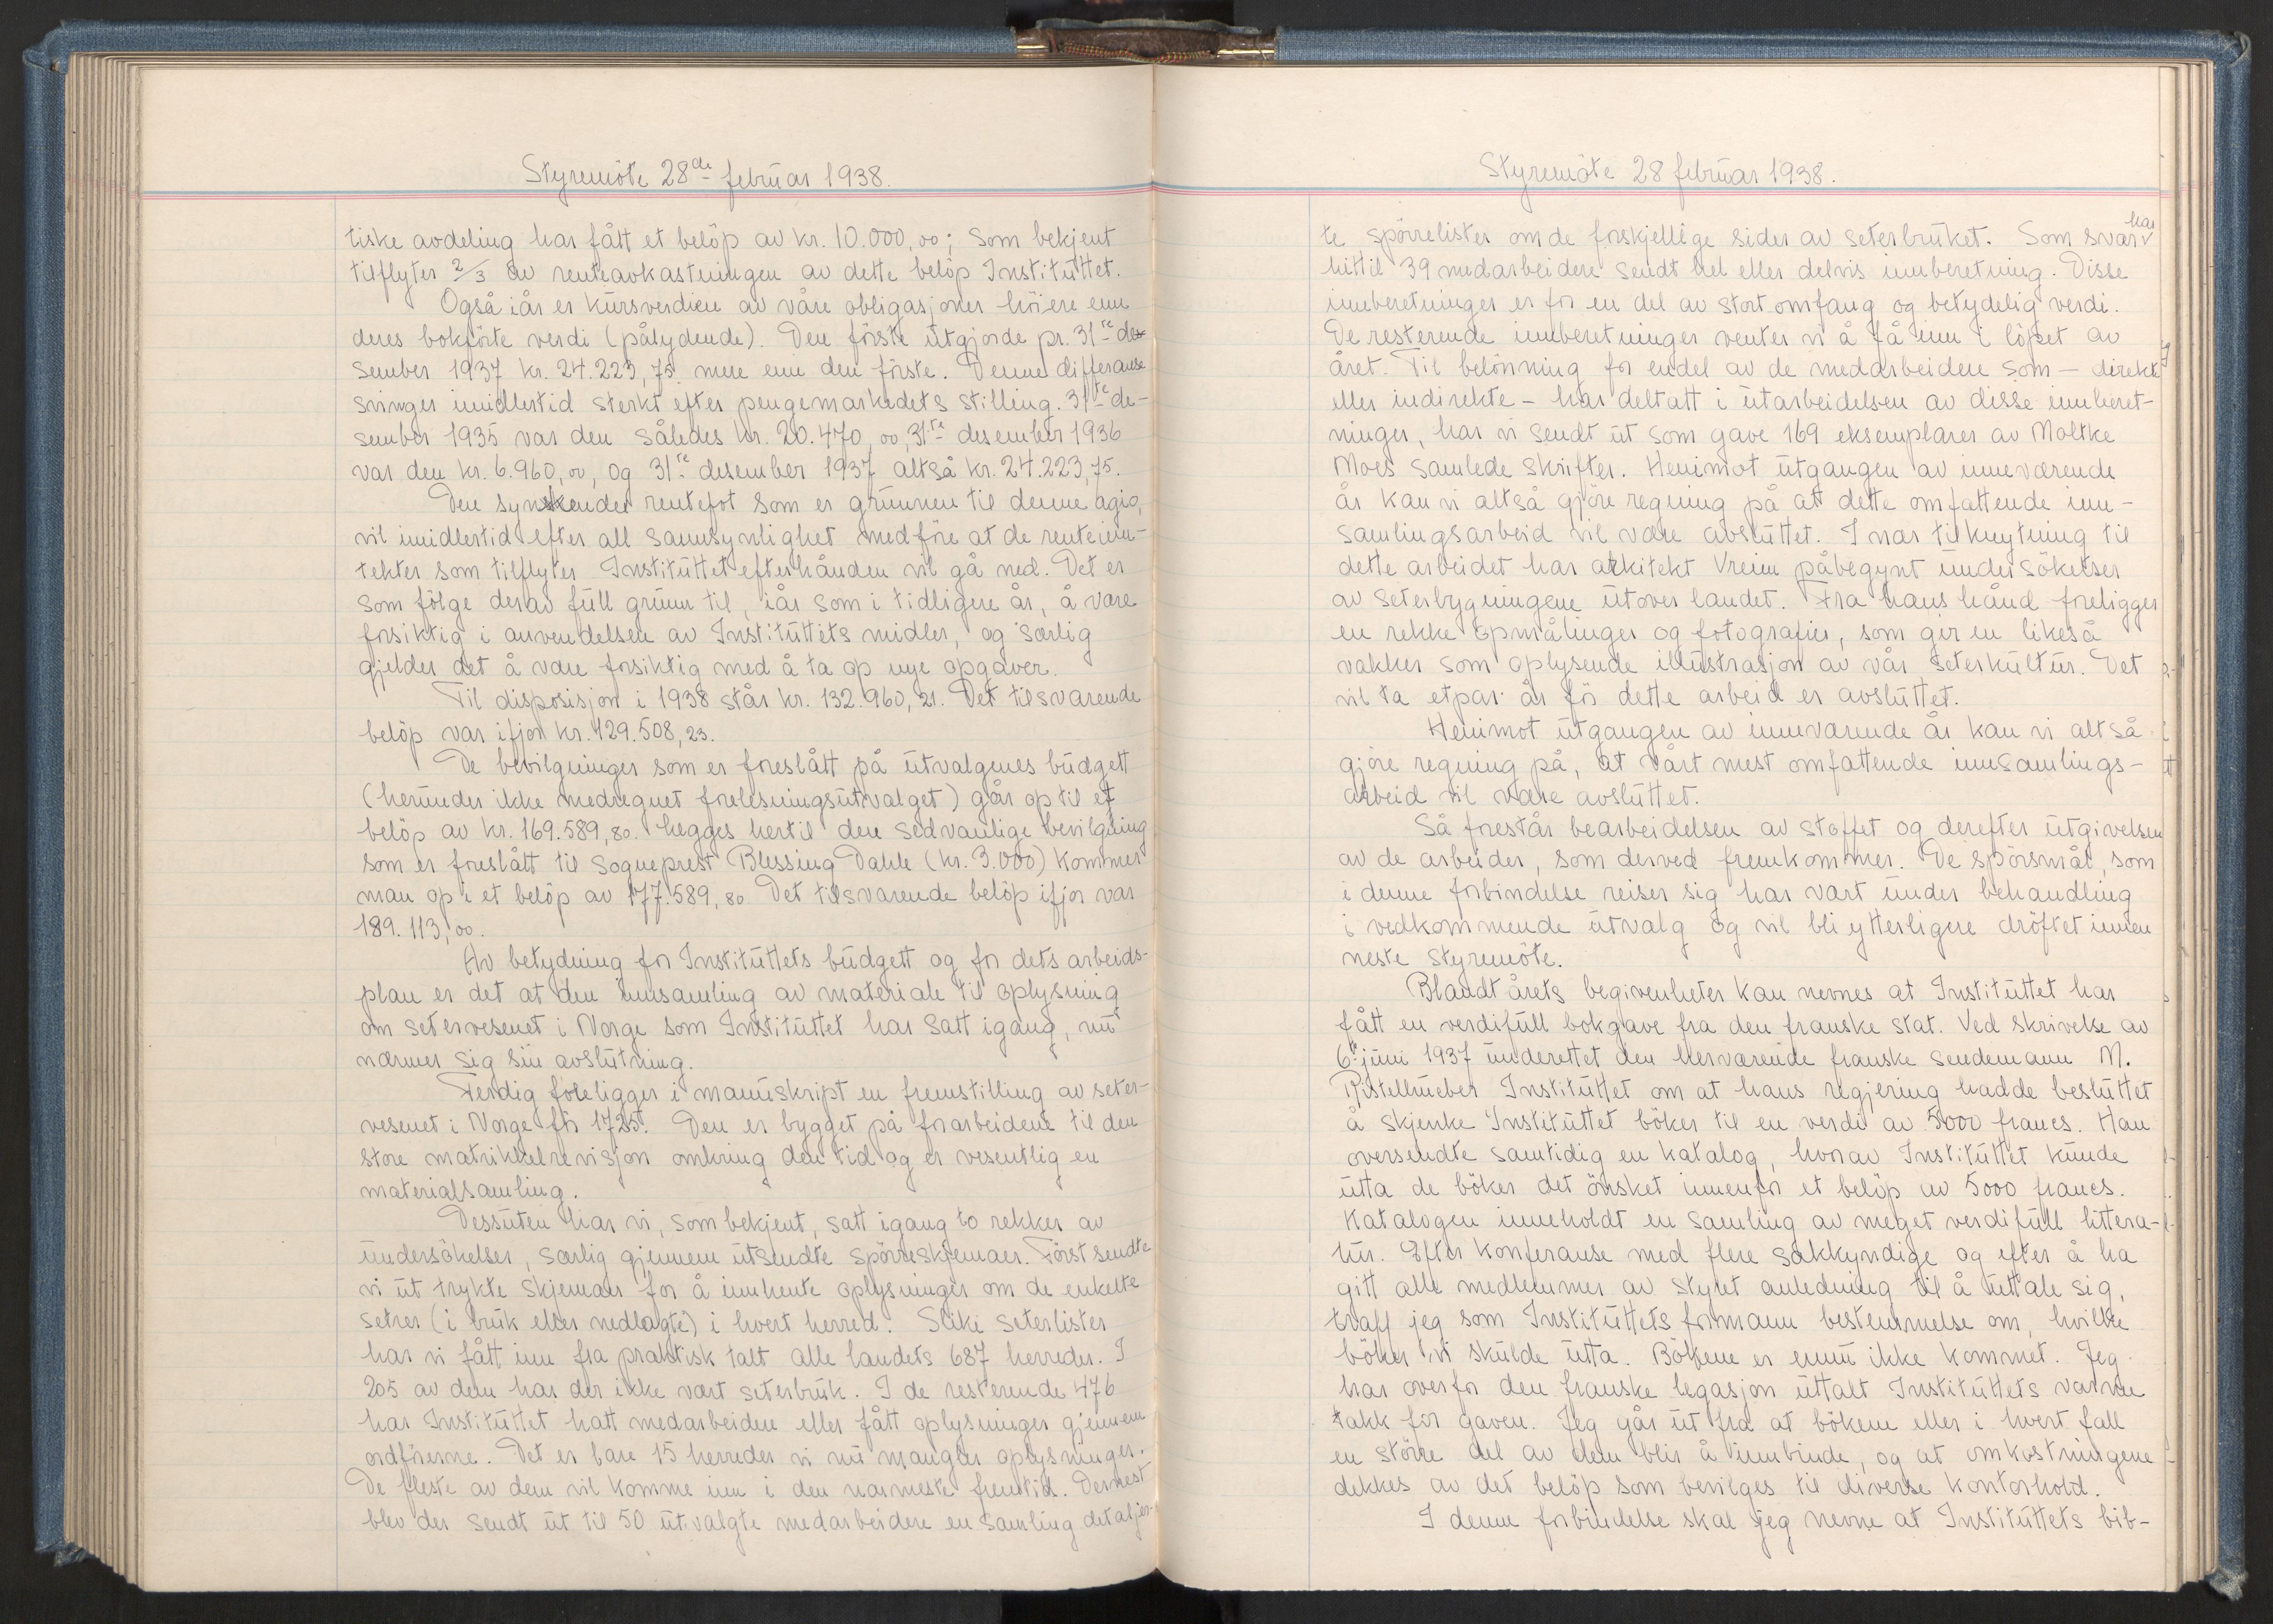 Styremöte 28de februar 1938.
tiske avdeling har fått et belöp av kr. 10.000,00; som bekjent
tilflyter 2/3 av renteavkastningen av dette belöp Instituttet.
Også iår er kursverdien av våre obligasjoner höiere enn
deres bokförte verdi (pålydende). Den förste utgjorde pr. 31te de-
sember 1937 kr. 24.223,75 mere enn den förste. Denne differanse
svinger imidlertid sterkt efter pengemarkedets stilling. 31te de-
sember 1935 var den således kr. 20.470,00, 31te desember 1936
var den kr. 6.960,00, og 31te desember 1937 altså kr. 24.223,75.
Den synkende rentefot som er grunnen til denne agio,
vil imidlertid efter all sannsynlighet medföre at de renteinn-
tekter som tilflyter Instituttet efterhånden vil gå ned. Det er
som fölge derav full grunn til, iår som i tidligere år, å være
forsiktig i anvendelsen av Instituttets midler, og særlig
gjelder det å være forsiktig med å ta op nye opgaver.
Til disposisjon i 1938 står kr. 132.960,21. Det tilsvarende
belöp var ifjor kr. 129.508,23.
De bevilgninger som er foreslått på utvalgenes budgett
(herunder ikke medregnet forelesningsutvalget) går op til et
belöp av kr. 169.589,80. Legges hertil den sedvanlige bevilgning
som er foreslått til sogneprest Blessing Dahle (kr. 3.000) kommer
man op i et belöp av 177.589,80 Det tilsvarende belöp ifjor var
189.113,00.
Av betydning for Instituttets budgett og for dets arbeids-
plan er det at den innsamling av materiale til oplysning
om setervesenet i Norge som Instituttet har satt igang, nu
nærmer sig sin avslutning.
Ferdig foreligger i manuskript en fremstilling av seter-
vesenet i Norge för 1725. Den er bygget på forarbeidene til den
store matrikkelrevisjon omkring den tid og er vesentlig en
materialsamling.
Dessuten har vi, som bekjent, satt igang to rekker av
undersökelser, særlig gjennem utsendte spörreskjemaer. Först sendte
vi ut trykte skjemaer for å innhente oplysninger om de enkelte
setrer (i bruk eller nedlagte) i hvert herred. Slike seterlister
har vi fått inn fra praktisk talt alle landets 687 herreder. I
205 av dem har der ikke vært seterbruk. I de resterende 476
har Instituttet hatt medarbeidere eller fått oplysninger gjennem
ordförerne. Det er bare 15 herreder vi nu mangler oplysninger.
De fleste av dem vil komme inn i den nærmeste fremtid. Dernest
blev der sendt ut til 50 utvalgte medarbeidere en samling detaljer-
Styremöte 28 februar 1938.
te spörrelister om de forskjellige sider av seterbruket. Som svar har
hittil 39 medarbeidere sendt hel eller delvis innberetning. Disse
innberetninger er for en del av stort omfang og betydelig verdi.
De resterende innberetninger venter vi å få inn i löpet av
året. Til belönning for endel av de medarbeidere som – direkte
eller indirekte – har deltatt i utarbeidelsen av disse innberet-
ninger, har vi sendt ut som gave 169 eksemplarer av Moltke
Moes samlede skrifter. Henimot utgangen av inneværende
år kan vi altså gjöre regning på at dette omfattende inn-
samlingsarbeid vil være avsluttet. I nær tilknytning til
dette arbeidet har arkitekt Vreim påbegynt undersökelser
av seterbygningene utover landet. Fra hans hånd foreligger
en rekke opmålinger og fotografier, som gir en likeså
vakker som oplysende illustrasjon av vår seterkultur. Det
vil ta etpar år för dette arbeid er avsluttet.
Henimot utgangen av inneværende år kan vi altså
gjöre regning på, at vårt mest omfattende innsamlings-
arbeid vil være avsluttet.
Så forestår bearbeidelsen av stoffet og derefter utgivelsen
av de arbeider, som derved fremkommer. De spörsmål, som
i denne forbindelse reiser sig har vært under behandling
i vedkommende utvalg og vil bli ytterligere dröftet innen
neste styremöte.
Blandt årets begivenheter kan nevnes at Instituttet har
fått en verdifull bokgave fra den franske stat. Ved skrivelse av
6. juni 1937 underettet den herværende franske sendemann M.
Ristellhueber Instituttet om at hans regjering hadde besluttet
å skjenke Instituttet böker til en verdi av 5000 francs. Han
oversendte samtidig en katalog, hvorav Instituttet kunde
utta de böker det önsket innenfor et belöp av 5000 francs.
Katalogen inneholdt en samling av meget verdifull littera-
tur. Efter konferanse med flere sakkyndige og efter å ha
gitt alle medlemmer av styret anledning til å uttale sig,
traff jeg som Instituttets formann bestemmelse om, hvilke
böker vi skulde utta. Bökene er ennu ikke kommet. Jeg
har overfor den franske legasjon uttalt Instituttets varme
takk for gaven. Jeg går ut fra at bökene eller i hvert fall
en större del av dem blir å innbinde, og at omkostningene
dekkes av det belöp som bevilges til diverse kontorhold.
I denne forbindelse skal jeg nevne at Instituttets bib-